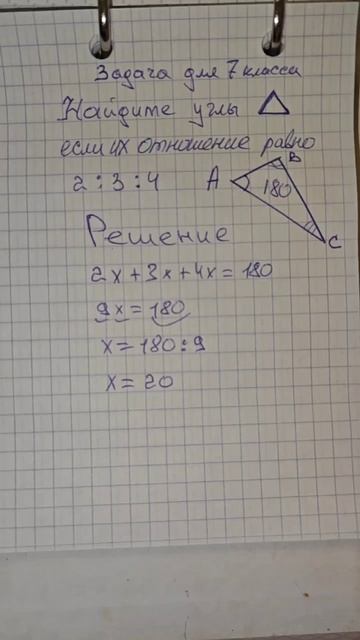 Задача для 7 класса
Найдите углы
если их отношение равно
2 : 3 : 4
A B C 180
Решение
2x + 3x + 4x = 180
9x = 180
x = 180 : 9
x = 20